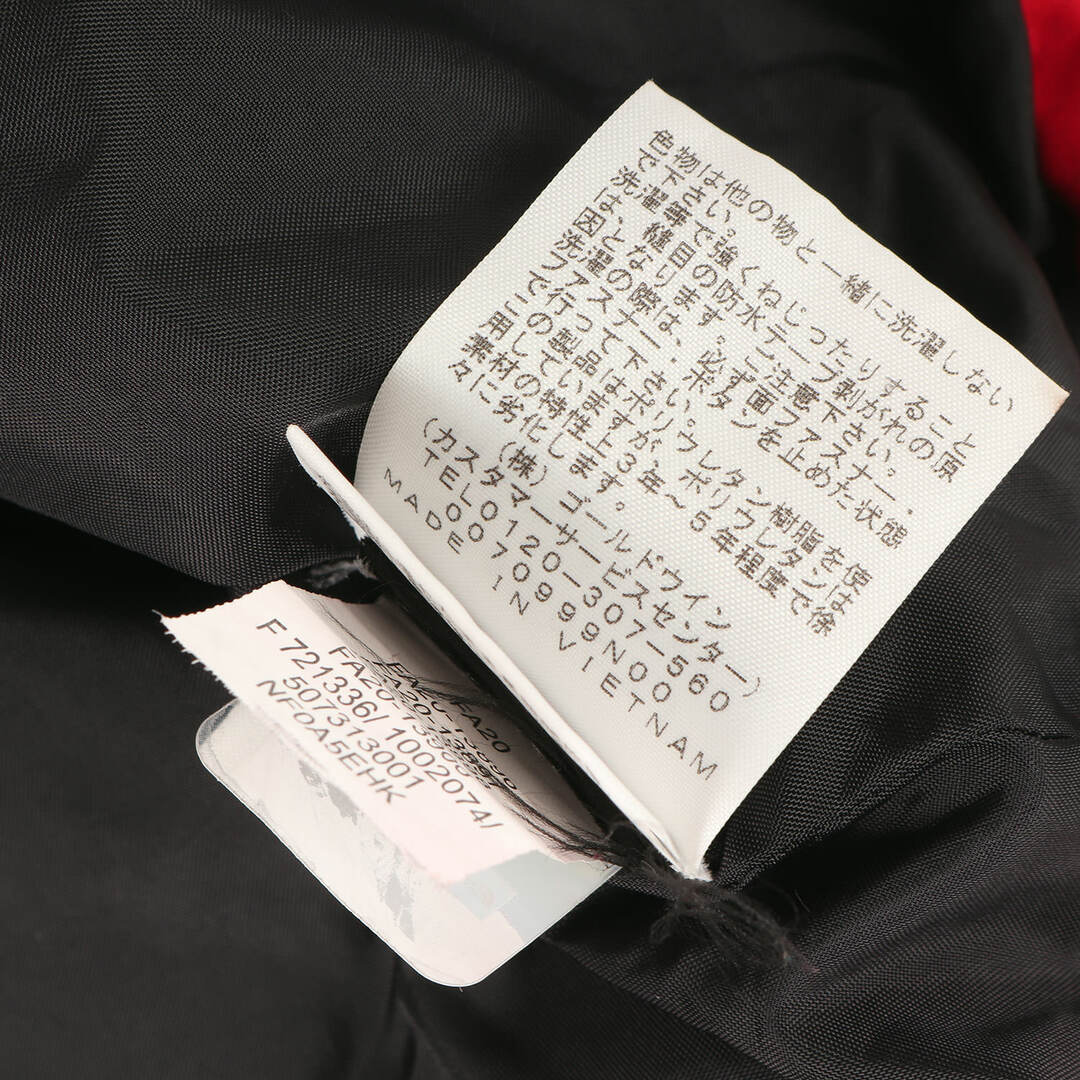 色物は他の物と一緒に洗濯しない
で下さい。
洗濯等で強くねじったりすること
は、縫目の防水テープ剥がれの原
因となります。ご注意下さい。
洗濯の際は、必ず面ファスナー、
ファスナー、ボタンを止めた状態
で行って下さい。
この製品はポリウレタン樹脂を使
用していますが、ポリウレタンは
素材の特性上3年〜5年程度で徐
々に劣化します。
(株)ゴールドウイン
(カスタマーサービスセンター)
TEL0120-307-560
0070999N00
MADE IN VIETNAM
FA20
F721336/1002074/
507313001
NF0A5EHK